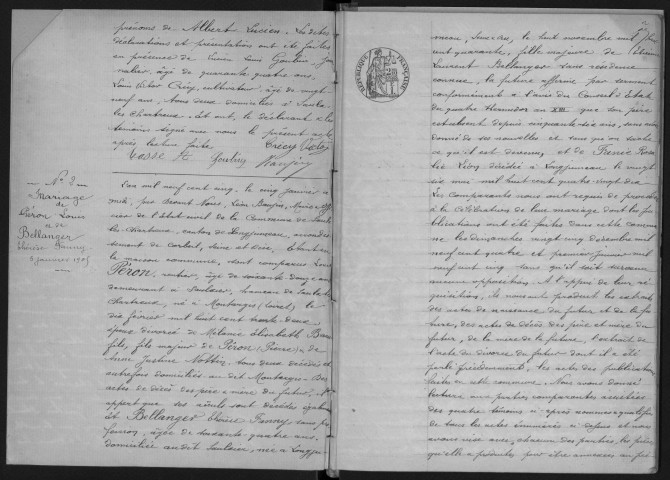 prénoms de Albert Lucien. Les dites
déclarations et présentations ont été faites
en présence de Louis Goulin, jour
nalier, âgé de quarante quatre ans,
Crécy, cultivateur, âgé de vingt
neuf ans, tous deux domiciliés à Saulx
les Chartreux. Et ont, le déclarant et les
témoins signé avec nous le présent acte
après lecture faite. Crecy
Goulin
N° 2
Mariage
de
Péron Louis
et de
Bellanger
Fanny
5 janvier 1905
L'an mil neuf cent cinq, le cinq janvier à
midi, par devant Nous, Léon, Maire offi
cier de l'état civil de la Commune de Saulx
les Chartreux, canton de Longjumeau, arrondis
sement de Corbeil, Seine et Oise,
la maison commune, sont comparus Louis
Péron, rentier, âgé de soixante douze ans
demeurant à Saulxier, hameau de Saulx les
Chartreux, né à Montargis (Loiret) le
dix février mil huit cent trente deux
époux divorcé de Mélanie Elisabeth
fils majeur de Péron (Pierre) & de
Anne Justine, tous deux décédés et
autrefois domiciliés au dit Montargis. Des
actes de décès des père et mère du futur, il
appert que ses aïeuls sont décédés également
et Bellanger Fanny sans pro
fession, âgée de soixante quatre ans,
domiciliée au dit Saulxier, née à Longju
meau, le huit novembre mil huit
cent quarante, fille majeure de
Laurent Bellanger sans résidence
connue, la future affirme par serment
conformément à l'avis du Conseil d'Etat
du quatre thermidor an XIII que son père
est absent depuis cinquante six ans, sans avoir
donné de ses nouvelles et sans qu'on sache
ce qu'il est devenu, et de Rose
décédée à Longjumeau le vingt
six mai mil huit cent quatre vingt dix.
Les comparants nous ont requis de procéder
à la célébration de leur mariage dont les pu
blications ont été faites dans cette commune
les dimanches vingt cinq décembre mil
neuf cent quatre et premier janvier mil
neuf cent cinq sans qu'il soit survenu
aucune opposition. A l'appui de leur ré
quisition, ils nous ont produit les extraits
des actes de naissance du futur et de la fu
ture, des actes de décès des père et mère du
futur, de la mère de la future, l'extrait de
l'acte de divorce du futur dont il a été
parlé précédemment, les actes des publications
faites en cette commune. Nous avons donné
lecture aux parties comparantes assistées
des quatre témoins ci-après nommés et qualifiés
de tous les actes énumérés ci dessus et nous
avons visé avec chacune des parties, les pièces
qu'elle a produites pour être annexées au pré
RÉPUBLIQUE FRANÇAISE